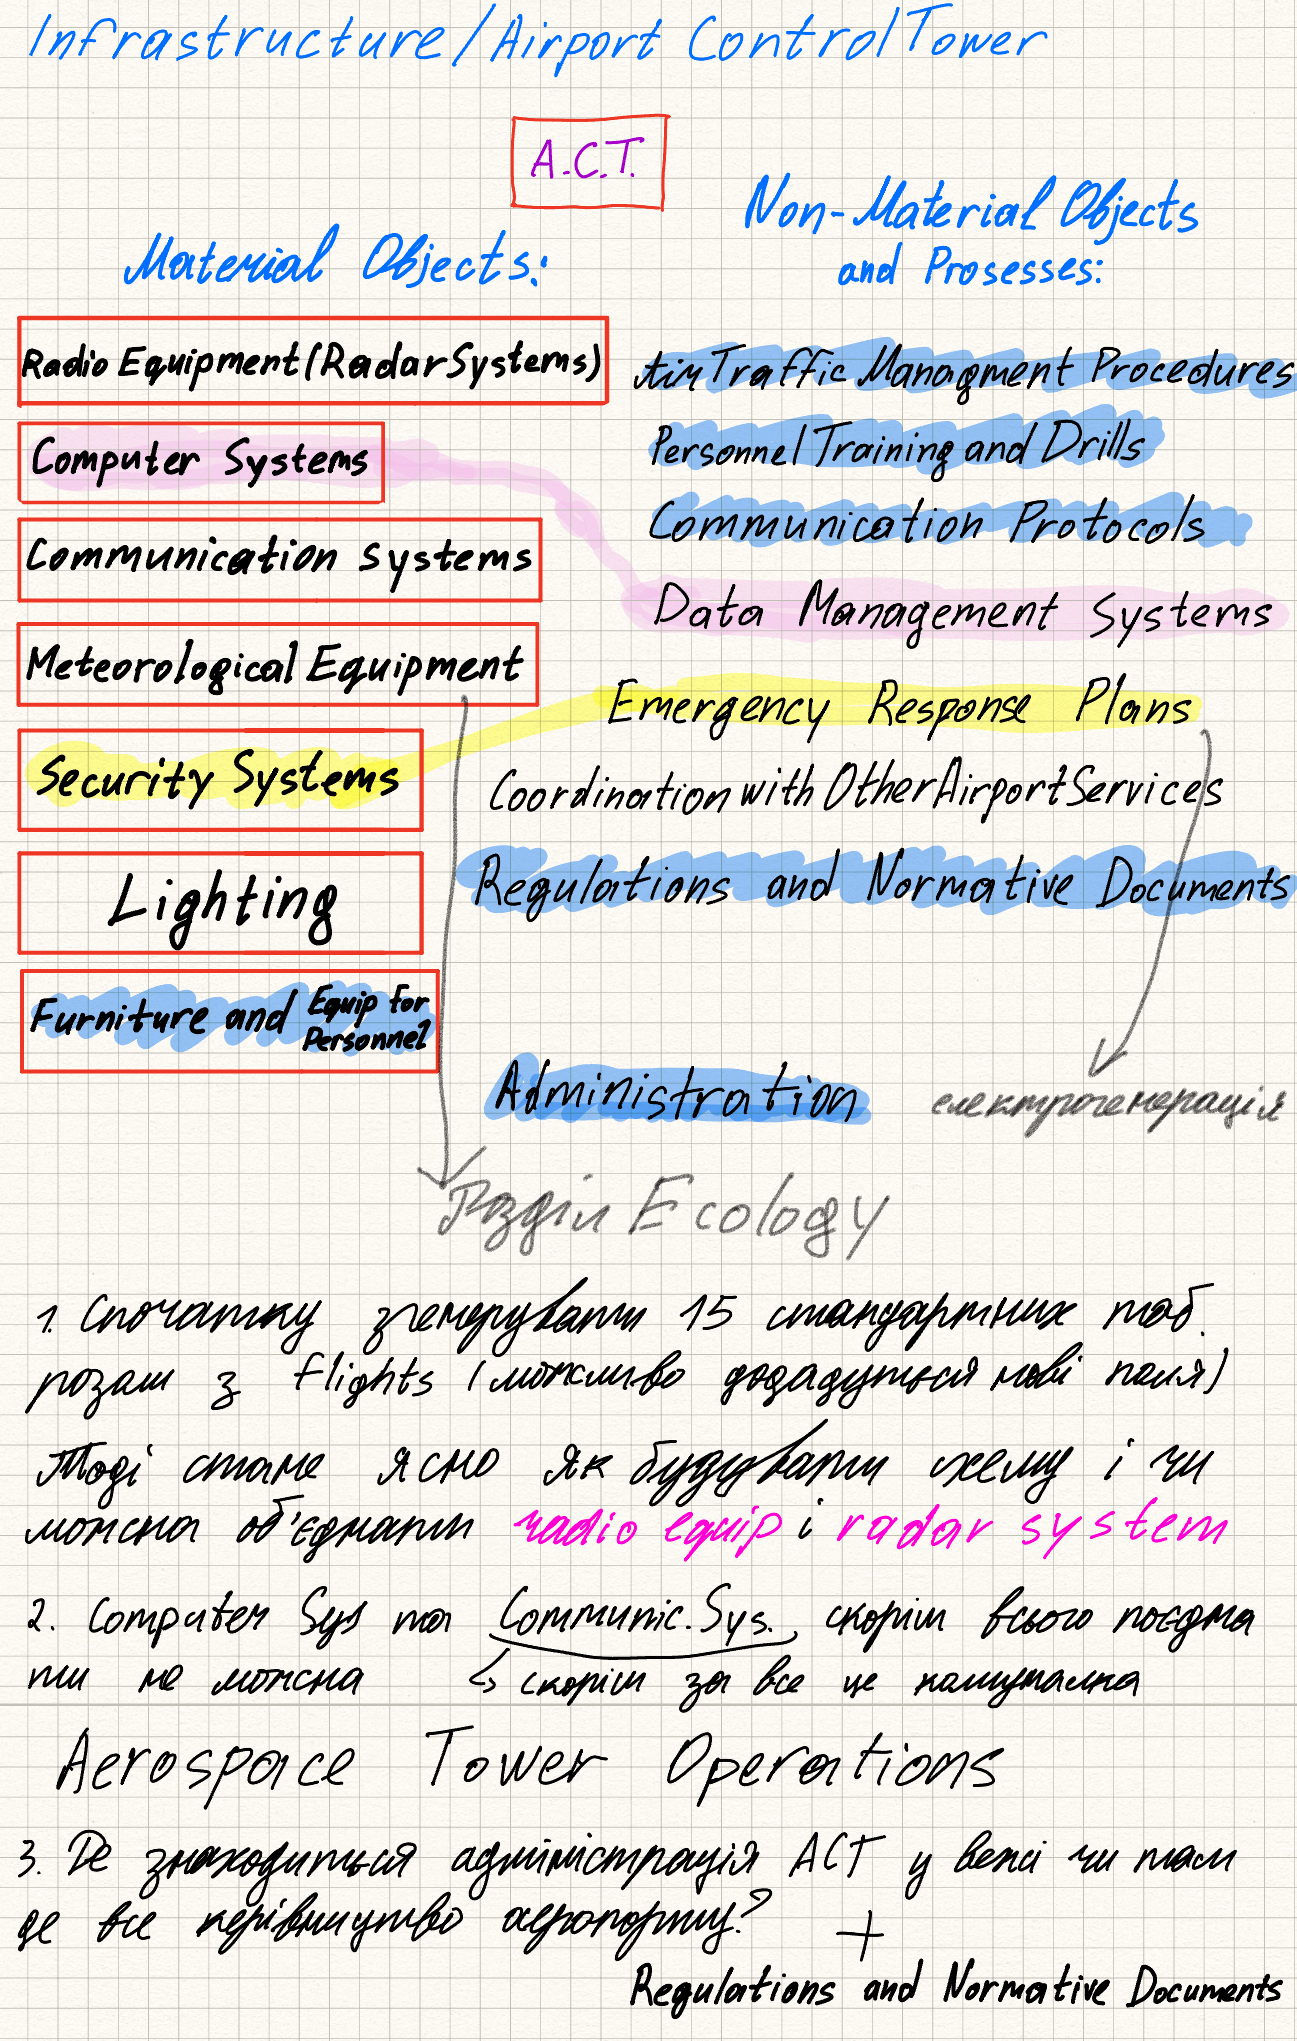 Infrastructure/Airport Control Tower
A.C.T.
Material Objects:
Radio Equipment (Radar Systems)
Computer Systems
Communication Systems
Meteorological Equipment
Security Systems
Lighting
Furniture and Equip for
Personnel
Non-Material Objects
and Prosesses:
Air Traffic Managment Procedures
Personnel Training and Drills
Communication Protocols
Data Management Systems
Emergency Response Plans
Coordination with Other Airport Services
Regulations and Normative Documents
Administration
електрогенерація
Розділ Ecology
1. Спочатку згенерувати 15 стандартних таб.
розаш з flights (можливо додадуться нові поля)
Тоді стане ясно як будувати схему і чи
можна об'єднати radio equip і radar system
2. Computer Sys та Communic. Sys. скоріш всього поєдна
ти не можна ↳ скоріш за все це
Aerospace Tower Operations
3. Де знаходиться адміністрація ACT у вежі чи там
де все керівництво аеропорту? +
Regulations and Normative Documents